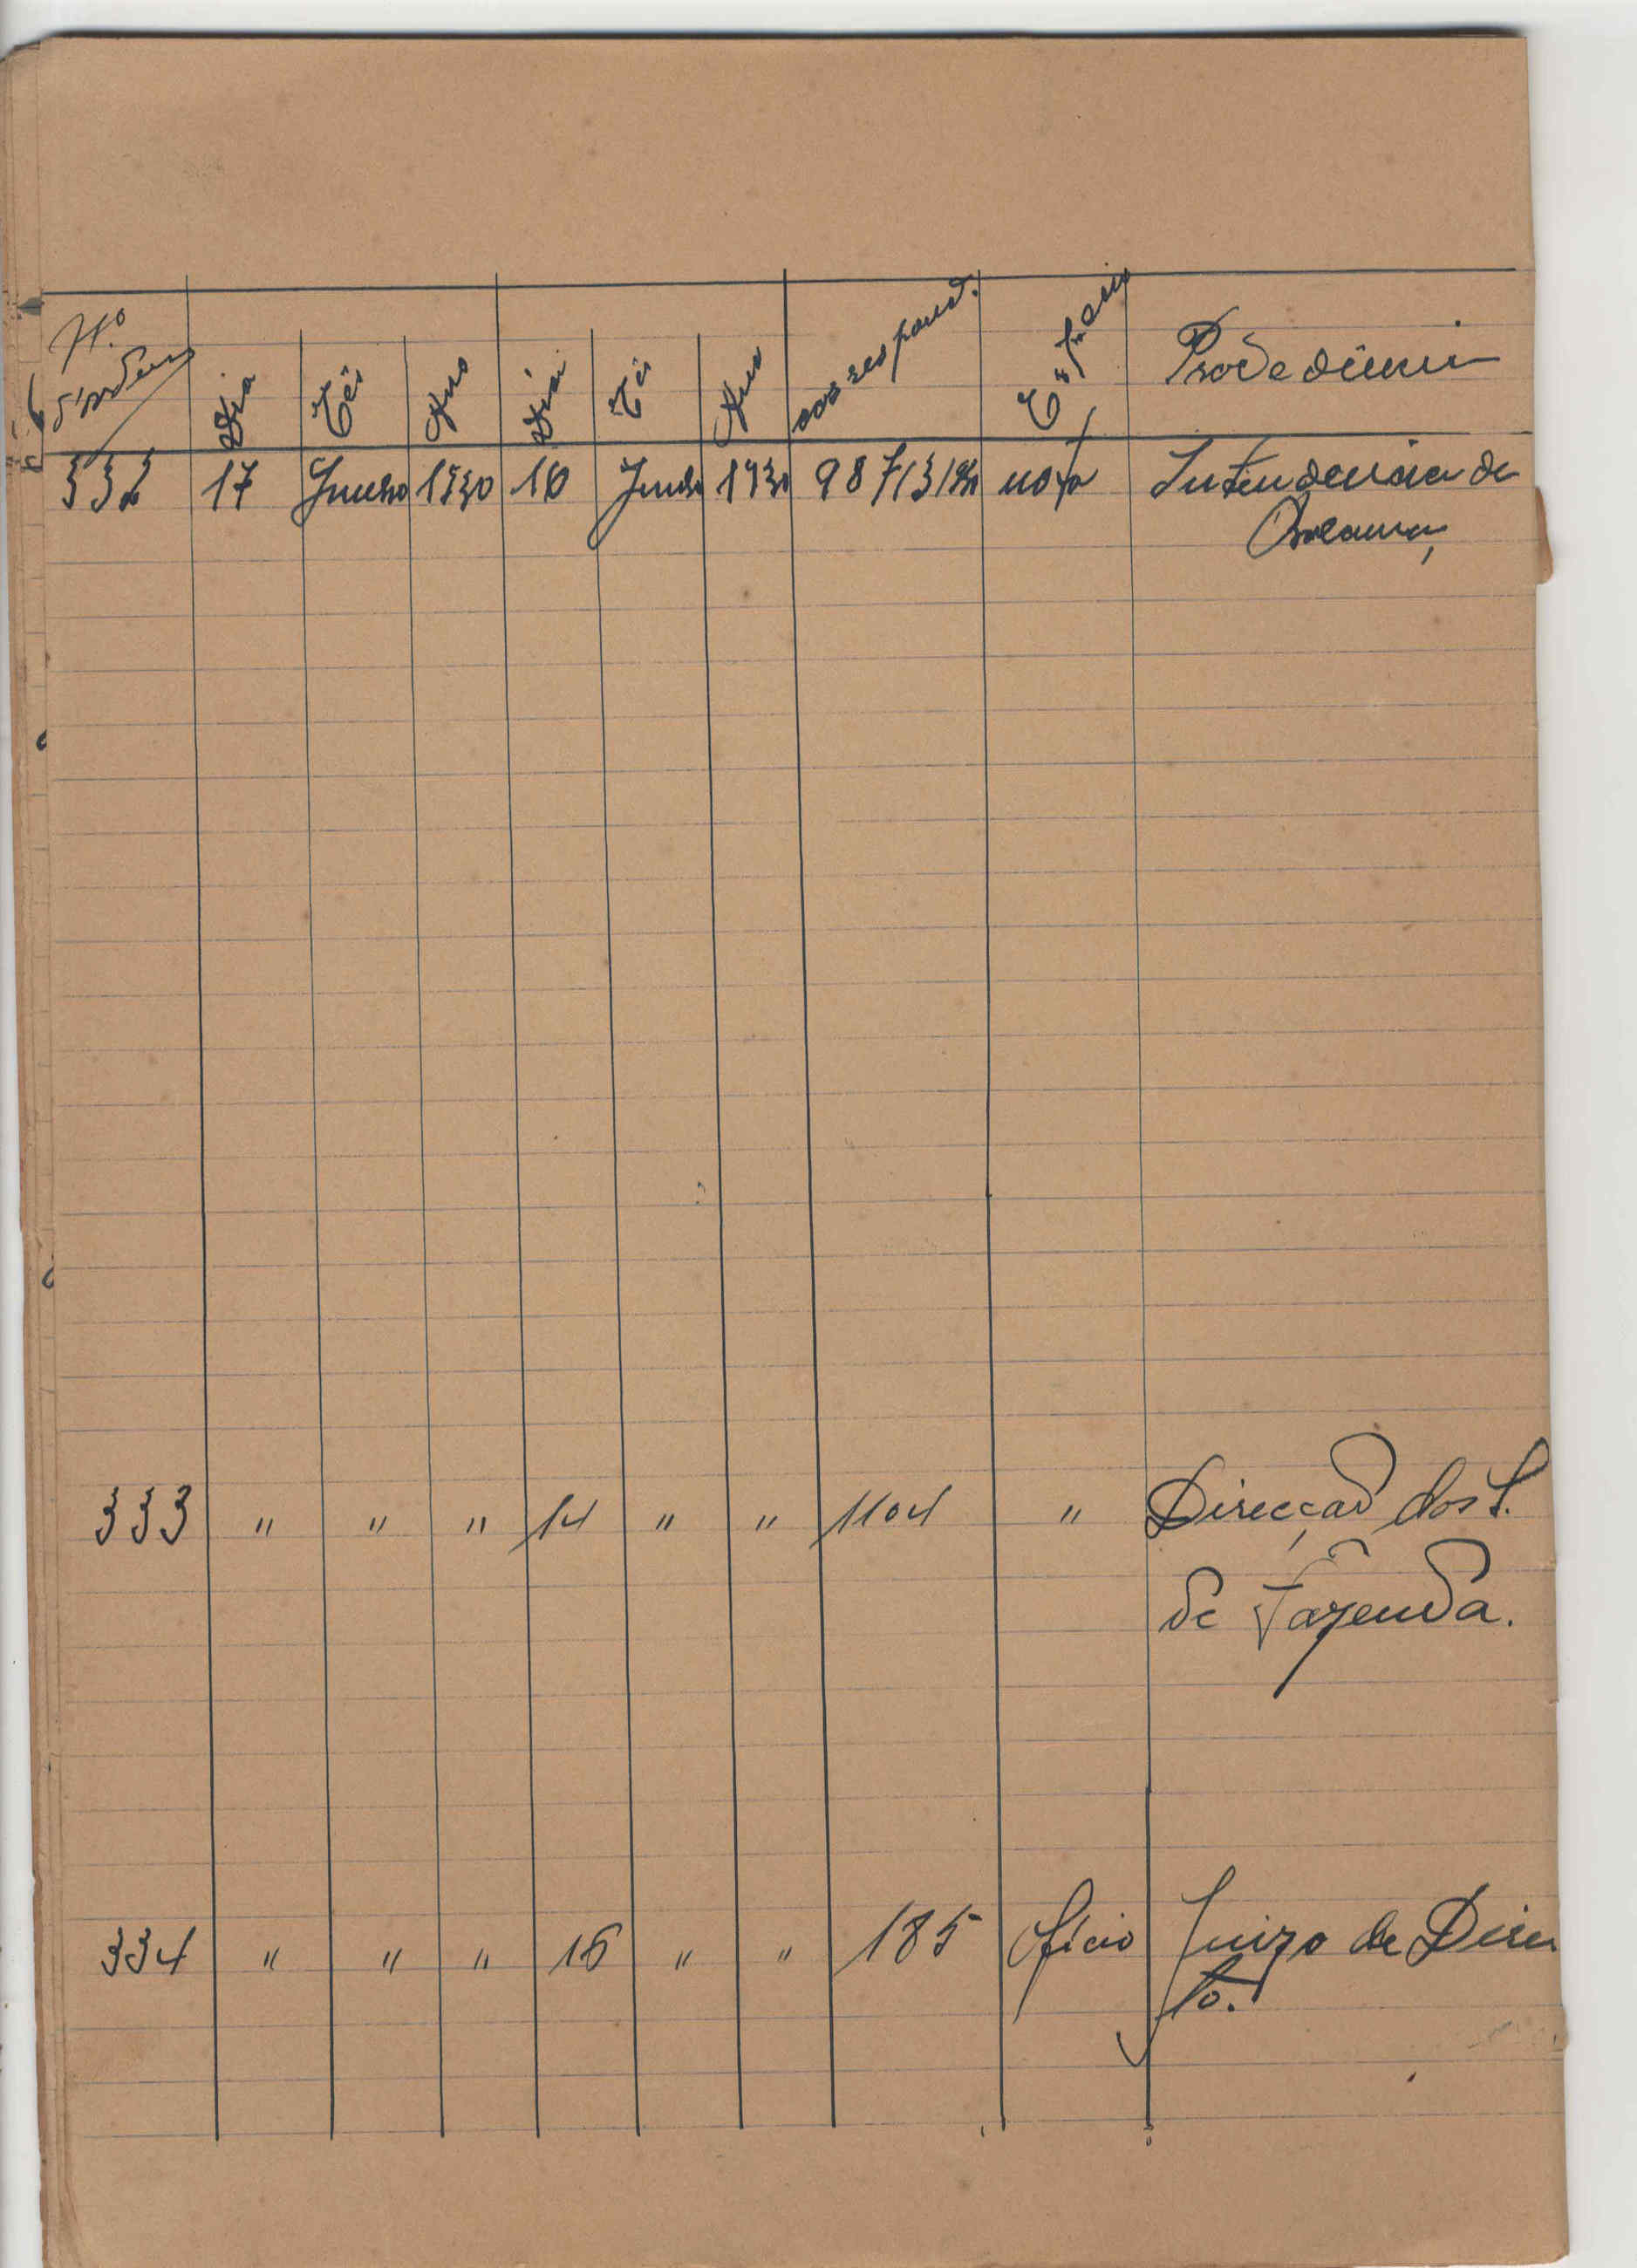 N.º d'ordem Dia Mês Ano Dia Mês Ano correspond. Espécie Procedênci
332 17 Junho 1930 16 Junho 1930 987/3/930 nota Intendencia de
Bolama,
333 " " " 14 " " 1104 " Direcção dos S.
de Fazenda.
334 " " " 16 " " 185 Ofício Juizo de Direi
to.